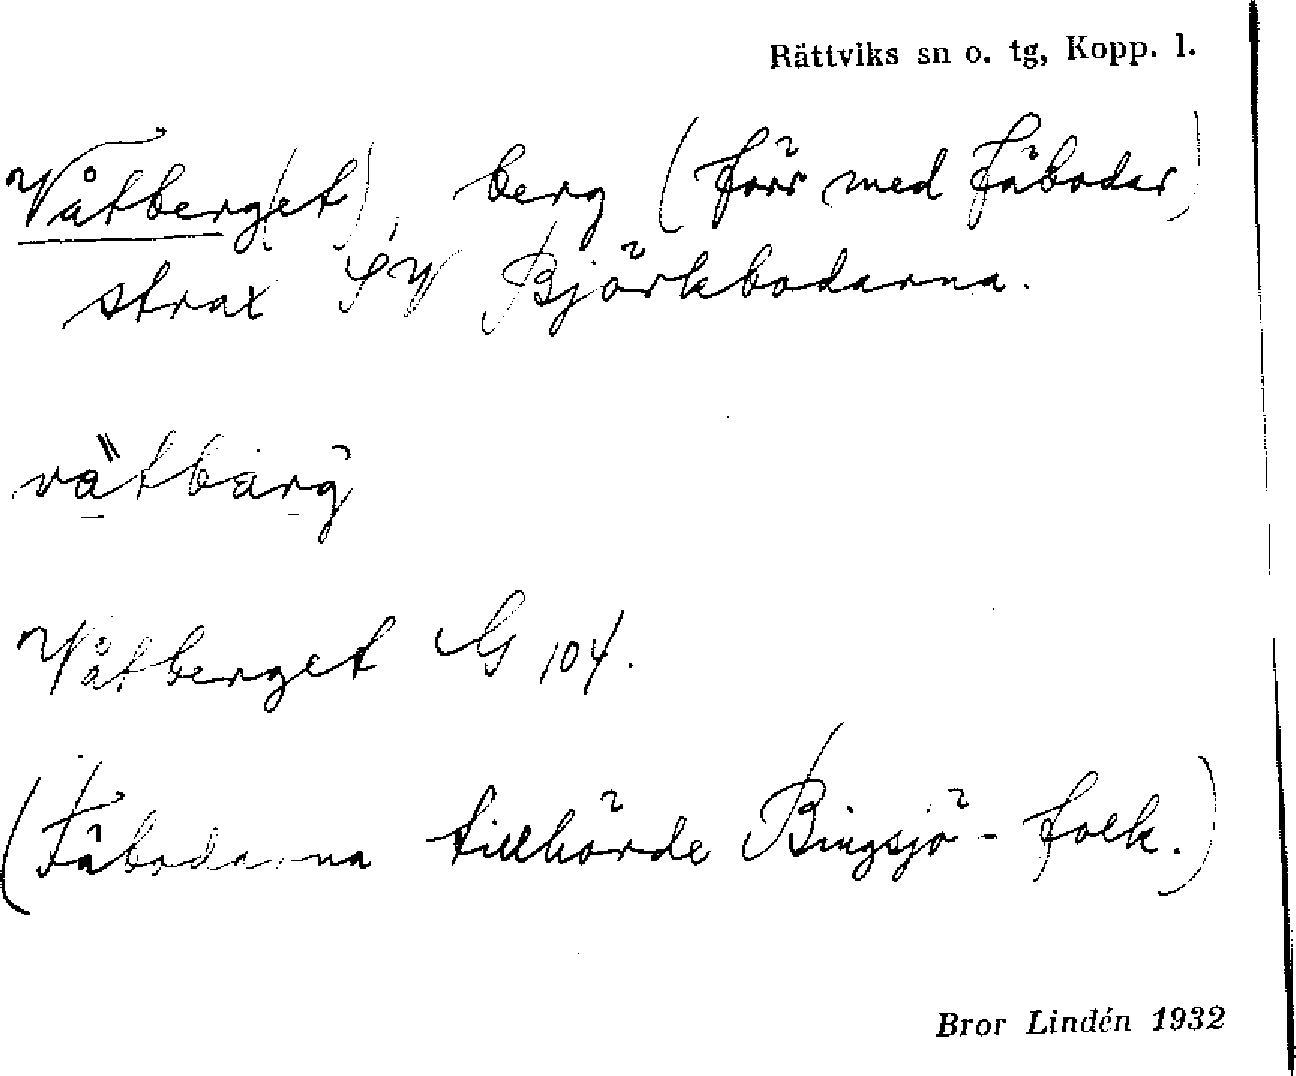 Rättviks sn o. tg, Kopp. l.
Våtberg(et), berg (förr med fäbodar)
strax SV Björkbodarna.
Våtberget G 104.
(Fäbodarna tillhörde Bingsjö-folk.)
Bror Lindén 1932